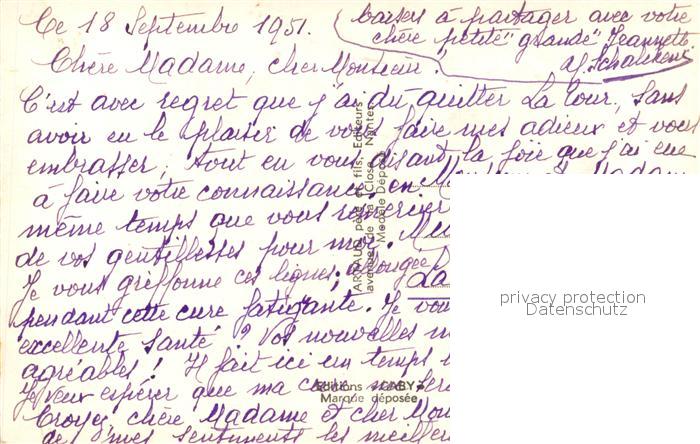 Ce 18 Septembre 1951.
baisers à partager avec votre
chère petite "grande" Jeannette
Chère Madame, cher Monsieur.
C'est avec regret que j'ai dû quitter La Tour, sans
avoir eu le plaisir de vous faire mes adieux et vous
embrasser, tout en vous disant la joie que j'ai eue
à faire votre connaissance, en
même temps que vous remercier
de vos gentillesses pour moi.
Je vous griffonne ces lignes, allongée
pendant cette cure fatigante. Je vou
excellente santé? Vos nouvelles m
agréables! Il fait ici un temps
Je veux espérer que ma cure me sera
Croyez, chère Madame et cher Mon
de mes sentiments les meilleu
ARNAUD, père et fils, Editeurs
avenue de la Close, Nantes
Modèle Déposé
Editions "GABY"
Marque déposée
privacy protection
Datenschutz